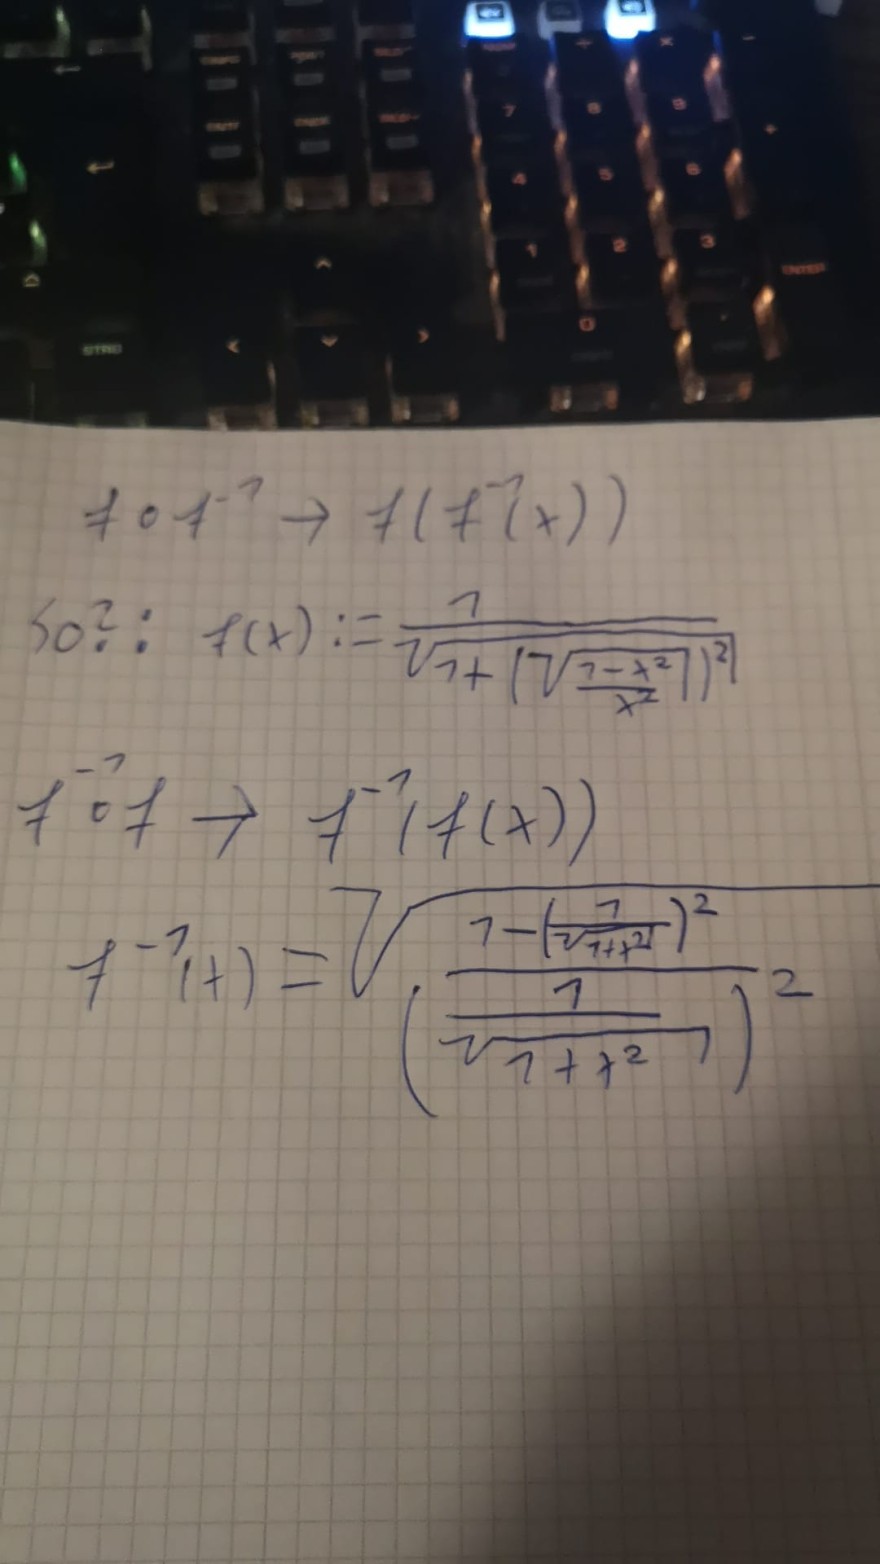 7 8 9
4 5 6 +
1 2 3
ENTER
0
STRG
f∘f⁻¹ → f(f⁻¹(x))
So?: f(x) := 1/√(1+(√((1-x²)/x²))²)
f⁻¹∘f → f⁻¹(f(x))
f⁻¹(x) = √((1-(1/√(1+x²))²)/(1/√(1+x²))²)